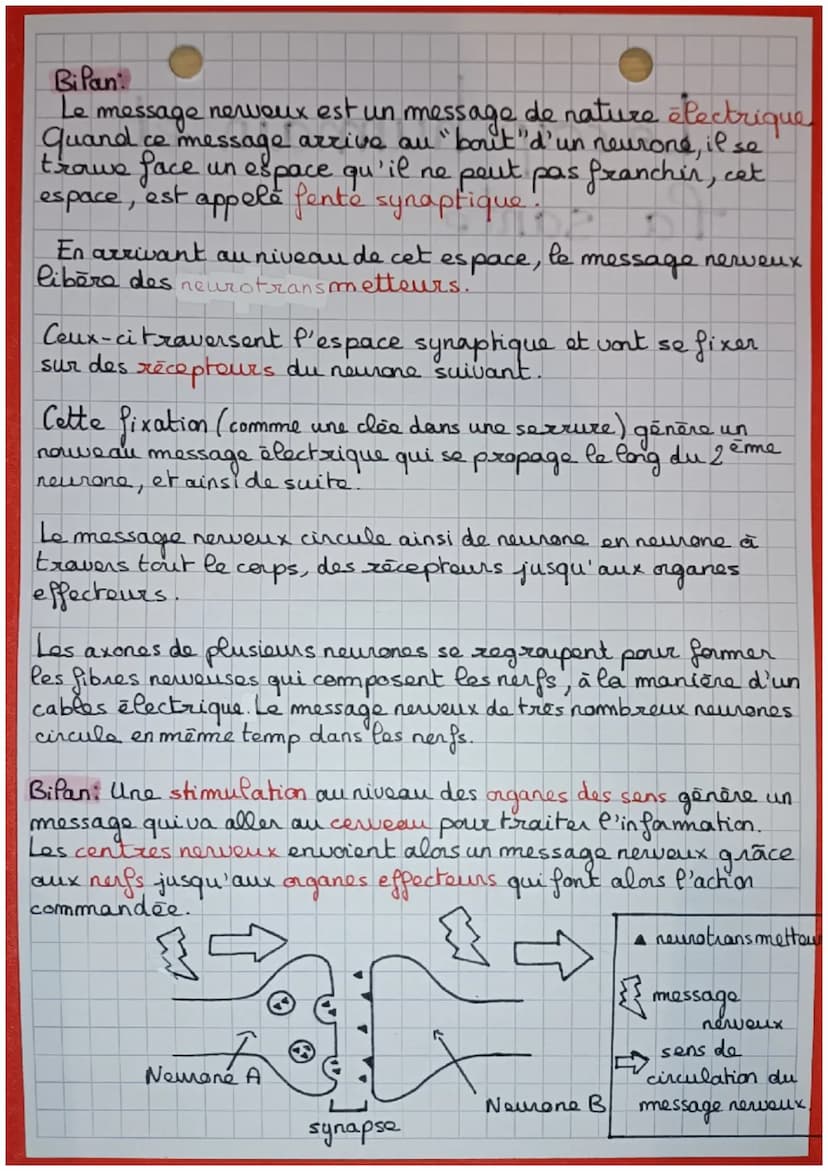 Bilan:
Le message nerveux est un message de nature électrique
Quand ce message arrive au "bout" d'un neurone, il se
trouve face un espace qu'il ne peut pas franchir, cet
espace, est appelé fente synaptique.
En arrivant au niveau de cet espace, le message nerveux
libère des neurotransmetteurs.
Ceux-ci traversent l'espace synaptique et vont se fixer
sur des récepteurs du neurone suivant.
Cette fixation (commme une clée dans une serrure) génère un
nouveau message électrique qui se propage le long du 2ème
neurone, et ainsi de suite.
Le message nerveux circule ainsi de neurone en neurone à
travers tout le corps, des récepteurs jusqu'aux organes
effecteurs.
Les axones de plusieurs neurones se regroupent pour former
les fibres nerveuses qui composent les nerfs, à la manière d'un
cables électrique. Le message nerveux de très nombreux neurones
circule en même temp dans les nerfs.
Bilan: Une stimulation au niveau des organes des sens génère un
message qui va aller au cerveau pour traiter l'information.
Les centres nerveux envoient alors un message nerveux grâce
aux nerfs jusqu'aux organes effecteurs qui font alors l'action
commandée.
neurotransmetteur
message
nerveux
sens de
circulation du
message nerveux
Neurone A
Neurone B
synapse